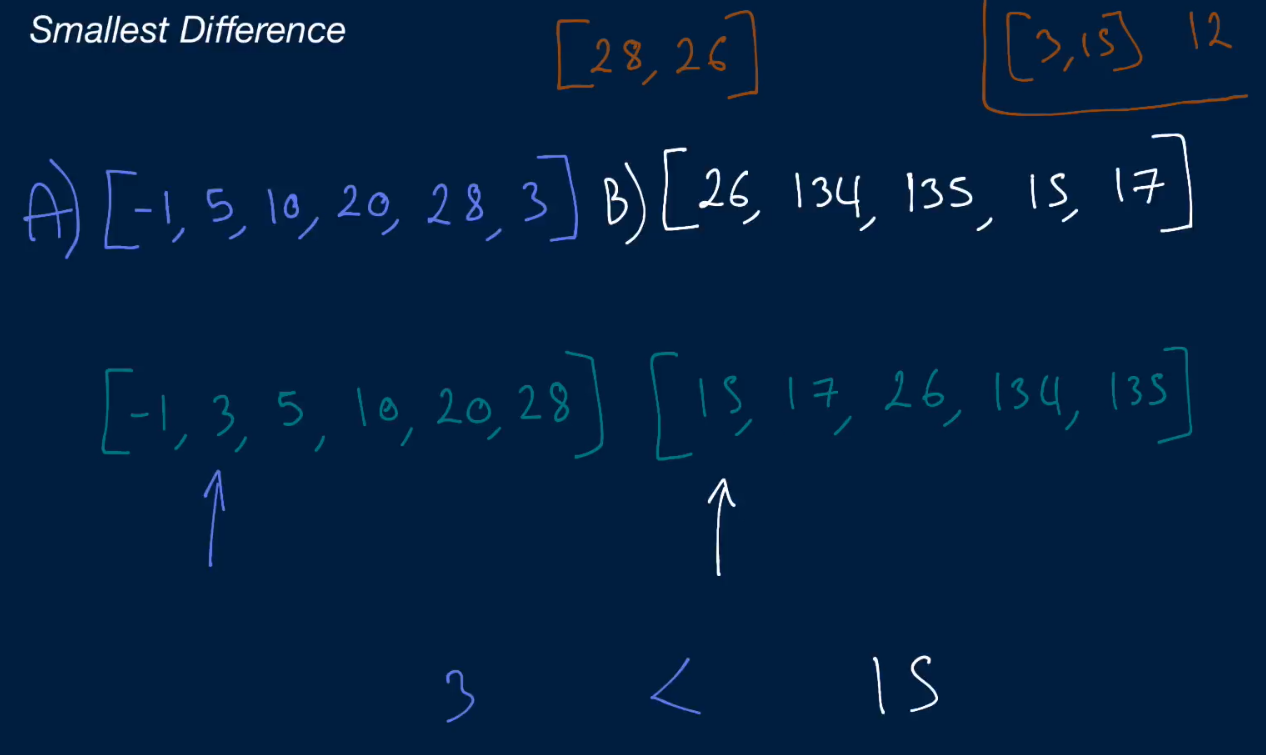 Smallest Difference
[28, 26]
[3, 15] 12
A) [-1, 5, 10, 20, 28, 3] B) [26, 134, 135, 15, 17]
[-1, 3, 5, 10, 20, 28] [15, 17, 26, 134, 135]
3 < 15